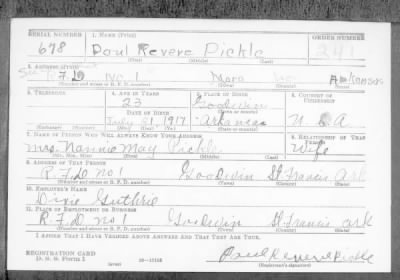 SERIAL NUMBER 1. NAME (Print) ORDER NUMBER
678 Paul Revere Pickle 241
2. ADDRESS (Print)
R.F.D. No. 1 Moro Arkansas
(Number and street or R. F. D. number) (Town) (County) (State)
3. TELEPHONE 4. AGE IN YEARS 5. PLACE OF BIRTH 6. COUNTRY OF CITIZENSHIP
23 Goodwin
(Town or county)
DATE OF BIRTH
July 21, 1917 Arkansas U.S.A
(Exchange) (Number) (Mo.) (Day) (Yr.) (State or country)
7. NAME OF PERSON WHO WILL ALWAYS KNOW YOUR ADDRESS 8. RELATIONSHIP OF THAT PERSON
Mrs. Nannie May Pickle Wife
(Mr., Mrs., Miss) (First) (Middle) (Last)
9. ADDRESS OF THAT PERSON
R.F.D. no 1 Goodwin St Francis Ark
(Number and street or R. F. D. number) (Town) (County) (State)
10. EMPLOYER'S NAME
Dixie Guthrie
11. PLACE OF EMPLOYMENT OR BUSINESS
R.F.D. no 1 Goodwin St Francis Ark
(Number and street or R. F. D. number) (Town) (County) (State)
I AFFIRM THAT I HAVE VERIFIED ABOVE ANSWERS AND THAT THEY ARE TRUE.
REGISTRATION CARD
D. S. S. Form 1 (over) Paul Revere Pickle
(Registrant's signature)